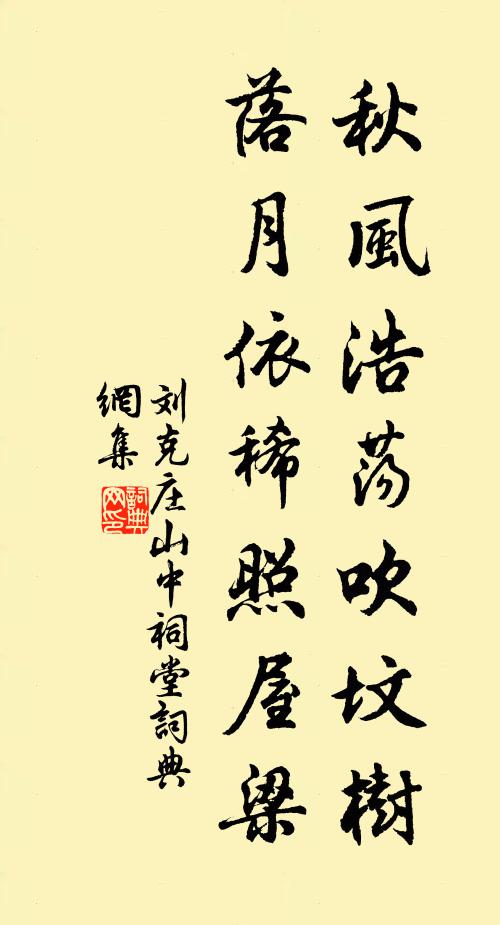 秋風浩蕩吹坟樹
落月依稀照屋梁
刘克庄山中祠堂詞典
網集
詞典
网印